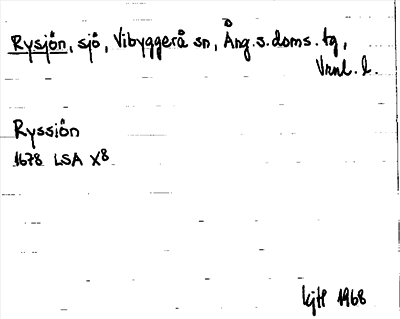 Rysjön, sjö, Vibyggerå sn, Ång.s.doms.tg,
Vrnl. l.
Ryssiön
1678 LSA X8
1968